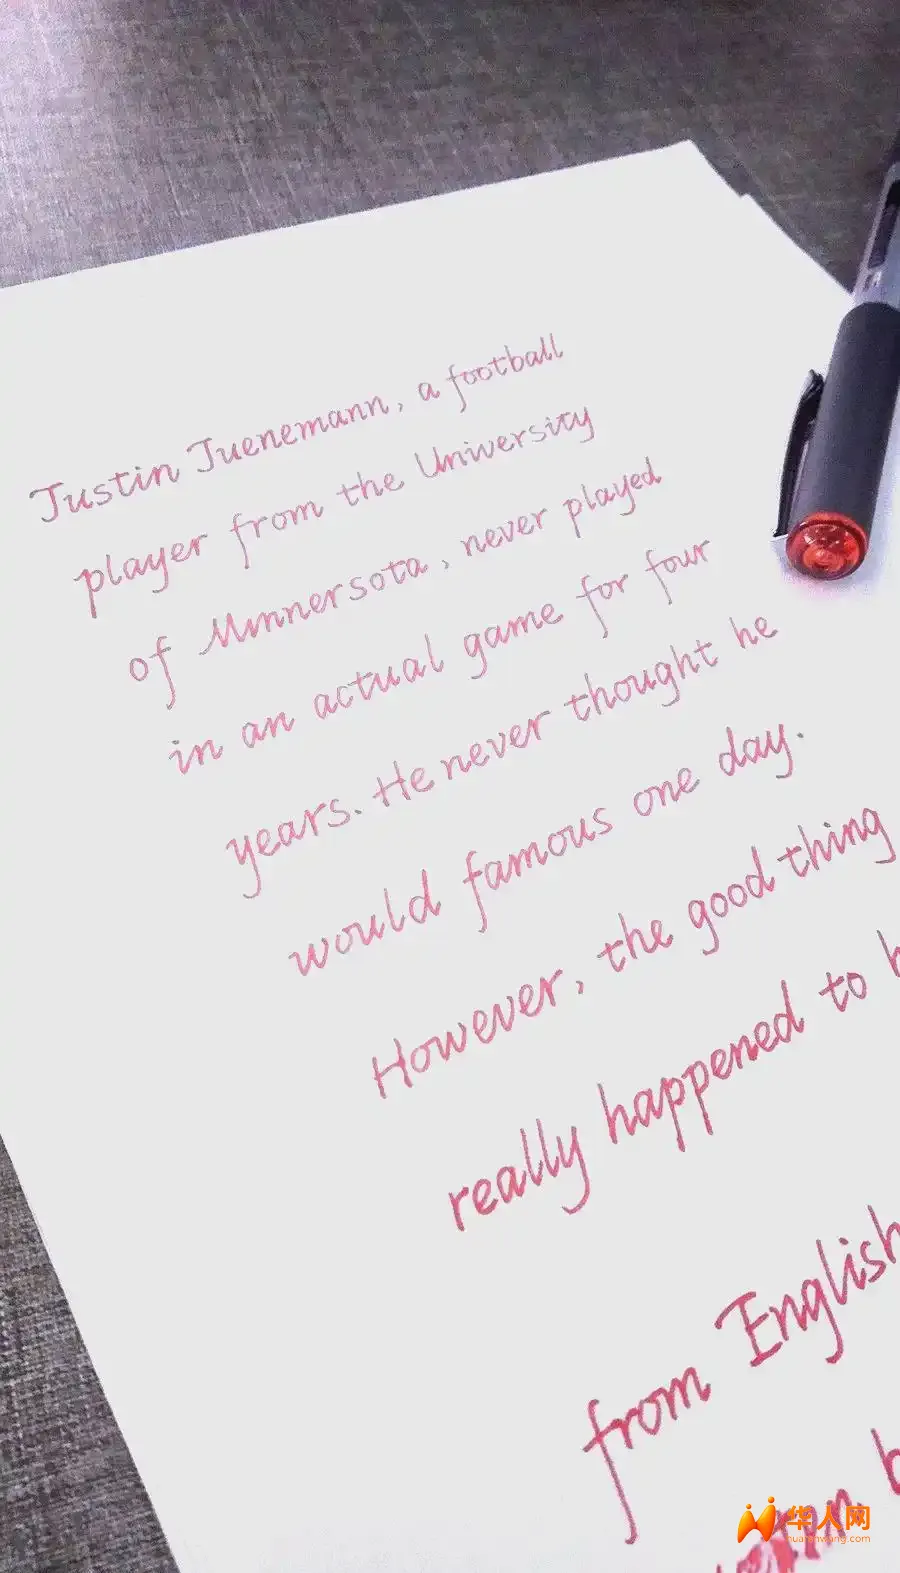 Justin Juenemann, a football
player from the University
of Minnersota, never played
in an actual game for four
years. He never thought he
would famous one day.
However, the good thing
really happened to h
from English
华人网
huarenwang.com